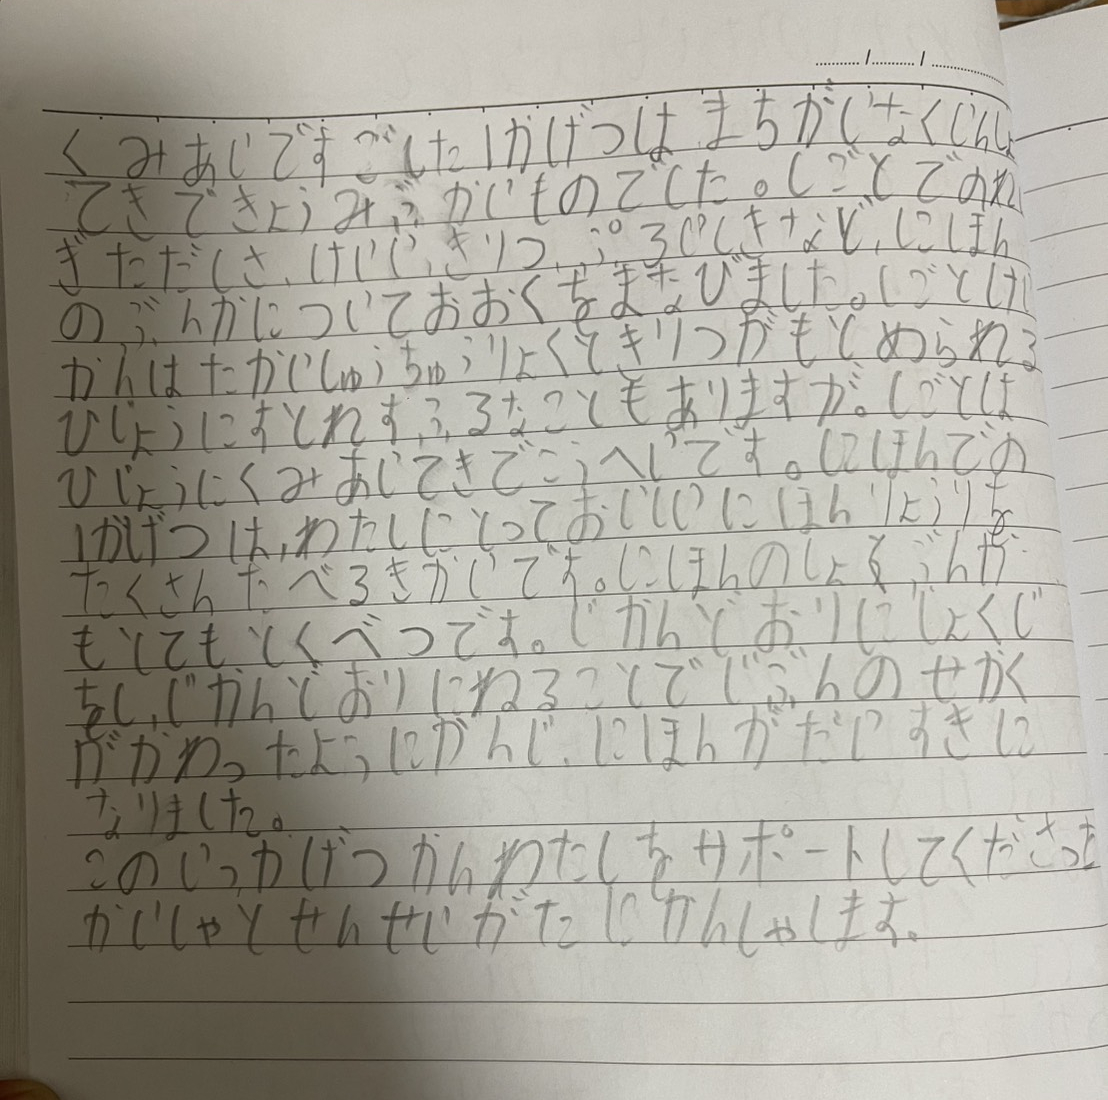 くみあいですごした1かげつは まちがいなくいんしょ
てきできょうみぶかいものでした。しごとでのれい
ぎただしさ、けいい、きりつ、ぷろいしきなど、にほん
のぶんかについておおくをまなびました。しごとじ
かんはたかいしゅうちゅうりょくてきりつがもとめられる
ひじょうにすとれすふるなこともありますが。しごとは
ひじょうにくみあいてきでこうへいです。にほんでの
1かげつは、わたしにとっておいしいにほんりょうりを
たくさんたべるきかいです。にほんのしょくぶんか
もとてもとくべつです。じかんどおりにしょくじ
をし、じかんどおりにねることでじぶんのせかく
ががわったようにかんじ、にほんがだいすきに
なりました。
このいっかげつかんわたしをサポートしてくださった
かいしゃとせんせいがたにかんしゃします。